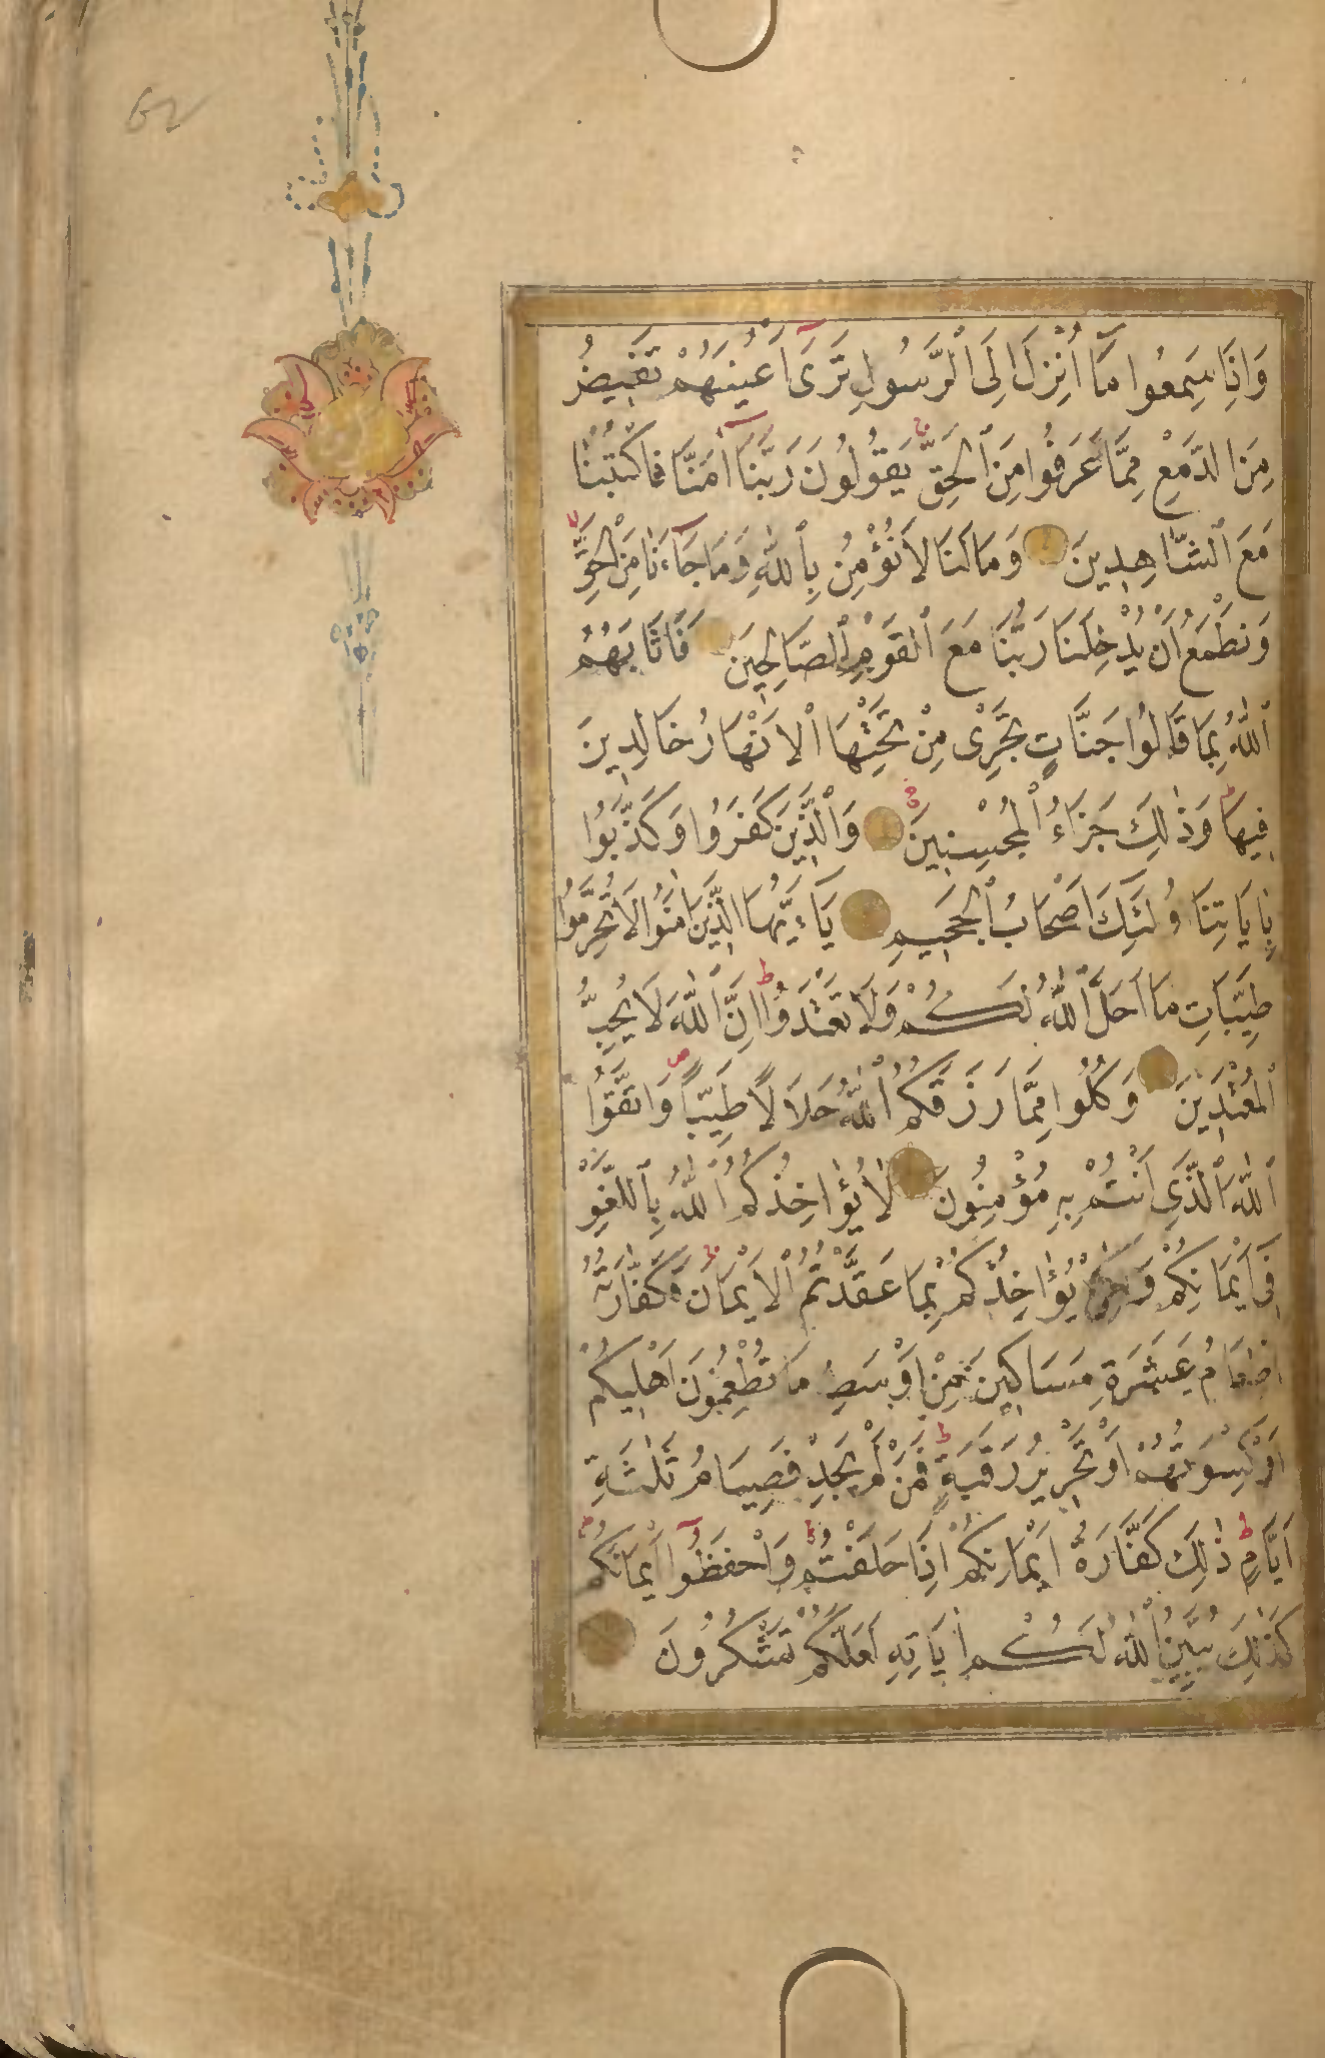 62
وَاِذَا سَمِعُوا مَٓا اُنْزِلَ اِلَى الرَّسُولِ تَرٰٓى اَعْيُنَهُمْ تَفٖيضُ
مِنَ الدَّمْعِ مِمَّا عَرَفُوا مِنَ الْحَقِّ يَقُولُونَ رَبَّنَٓا اٰمَنَّا فَاكْتُبْنَا
مَعَ الشَّاهِدِينَ وَمَا لَنَا لَا نُؤْمِنُ بِاللّٰهِ وَمَا جَٓاءَنَا مِنَ الْحَقِّ
وَنَطْمَعُ اَنْ يُدْخِلَنَا رَبُّنَا مَعَ الْقَوْمِ الصَّالِحِينَ فَاَثَابَهُمُ
اللّٰهُ بِمَا قَالُوا جَنَّاتٍ تَجْرِى مِنْ تَحْتِهَا الْاَنْهَارُ خَالِدِينَ
فِيهَا وَذٰلِكَ جَزَاءُ الْمُحْسِنِينَ وَالَّذِينَ كَفَرُوا وَكَذَّبُوا
بِاٰيَاتِنَا وُلٰئِكَ اَصْحَابُ الْجَحِيمِ يَاءَيُّهَا الَّذِينَ اٰمَنُوا لَا تُحَرِّمُوا
طَيِّبَاتِ مَا اَحَلَّ اللّٰهُ لَكُمْ وَلَا تَعْتَدُوا اِنَّ اللّٰهَ لَا يُحِبُّ
الْمُعْتَدِينَ وَكُلُوا مِمَّا رَزَقَكُمُ اللّٰهُ حَلَالًا طَيِّبًا وَاتَّقُوا
اللّٰهَ الَّذِى اَنْتُمْ بِهِ مُؤْمِنُونَ لَا يُؤَاخِذُكُمُ اللّٰهُ بِاللَّغْوِ
فِى اَيْمَانِكُمْ يُؤَاخِذُكُمْ بِمَا عَقَّدْتُمُ الْاَيْمَانَ فَكَفَّارَتُهُ
اِطْعَامُ عَشَرَةِ مَسَاكِينَ مِنْ اَوْسَطِ مَا تُطْعِمُونَ اَهْلِيكُمْ
اَوْ كِسْوَتُهُمْ اَوْ تَحْرِيرُ رَقَبَةٍ فَمَنْ لَمْ يَجِدْ فَصِيَامُ ثَلٰثَةِ
اَيَّامٍ ذٰلِكَ كَفَّارَةُ اَيْمَانِكُمْ اِذَا حَلَفْتُمْ وَاحْفَظُوا اَيْمَانَكُمْ
كَذٰلِكَ يُبَيِّنُ اللّٰهُ لَكُمْ اٰيَاتِهِ لَعَلَّكُمْ تَشْكُرُونَ